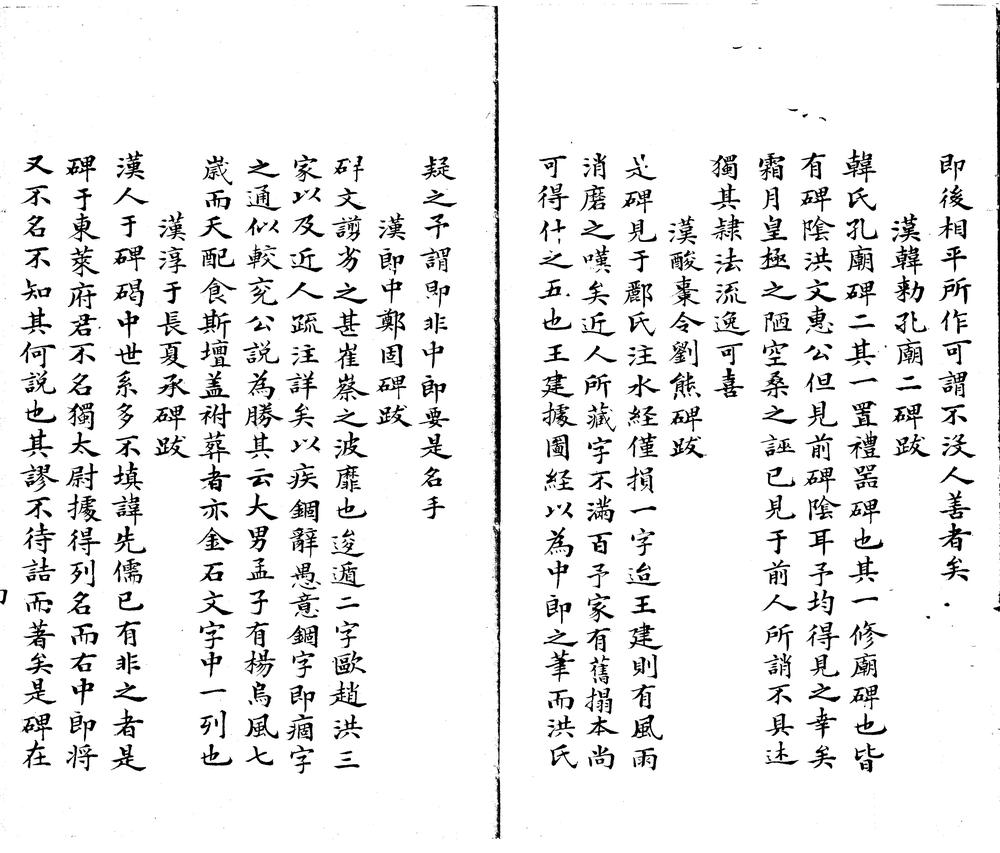 即後相平所作可謂不沒人善者矣
漢韓勑孔廟二碑跋
韓氏孔廟碑二其一置禮噐碑也其一修廟碑也皆
有碑陰洪文惠公但見前碑陰耳予均得見之幸矣
霜月皇極之陋空桑之誣已見于前人所誚不具述
獨其隸法流逸可喜
漢酸棗令劉熊碑跋
是碑見于酈氏注水経僅損一字迨王建則有風雨
消磨之嘆矣近人所藏字不滿百予家有舊搨本尚
可得什之五也王建據圖経以為中郎之筆而洪氏
疑之予謂即非中郎要是名手
漢郎中鄭固碑跋
碑文謭劣之甚崔蔡之波靡也逡遁二字歐趙洪三
家以及近人疏注詳矣以疾錮辭愚意錮字即痼字
之通似較兖公説為勝其云大男孟子有楊烏風七
歲而夭配食斯壇盖祔葬者亦金石文字中一列也
漢淳于長夏承碑跋
漢人于碑碣中世系多不填諱先儒已有非之者是
碑于東萊府君不名獨太尉掾得列名而右中郎将
又不名不知其何説也其謬不待詰而著矣是碑在